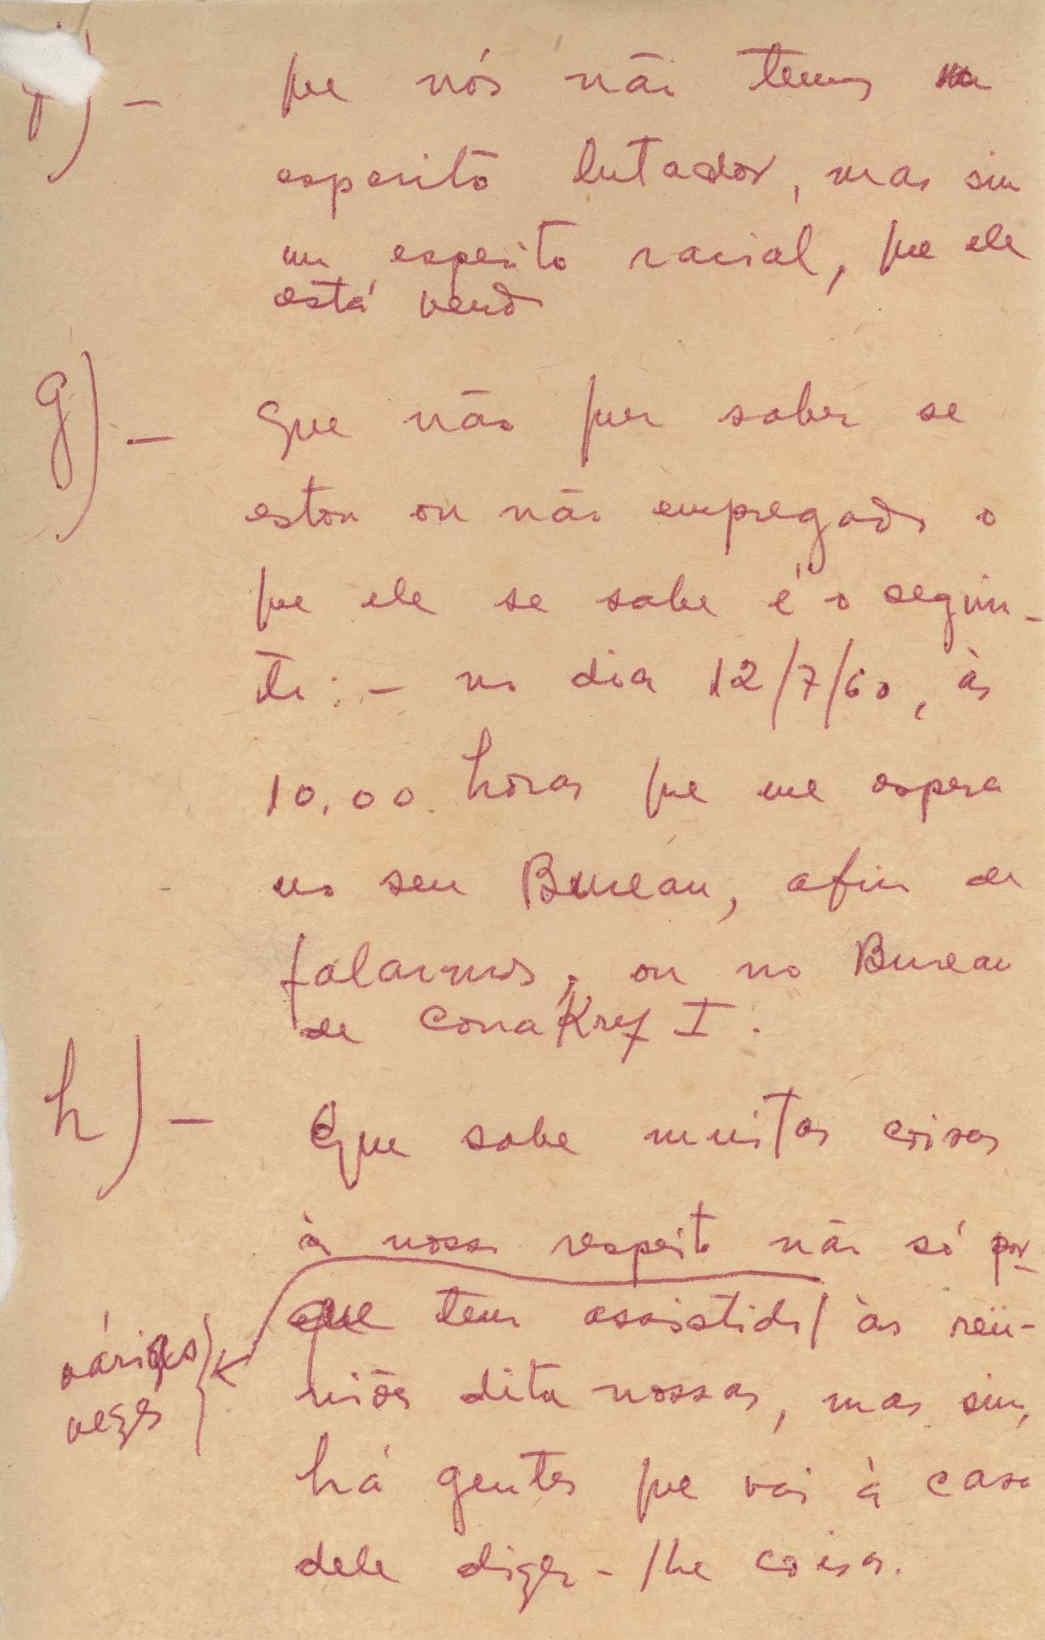 f) — que nós não temos
esperito lutador, mas sim
um esperito racial, que ele
está vendo
g) — Que não quer saber se
estou ou não empregado o
que ele se sabe é o seguin-
te: — no dia 12/7/60, às
10,00 horas que me espera
no seu Bureau, afim de
falarmos, ou no Bureau
de Conakrey I.
h) — Que sabe muitas coisas
à nosso respeito não só por-
que tem assistido/ às reü-
niões dita nossas, mas sim,
várias
vezes
há gentes que vai à casa
dele dizer-lhe coisas.